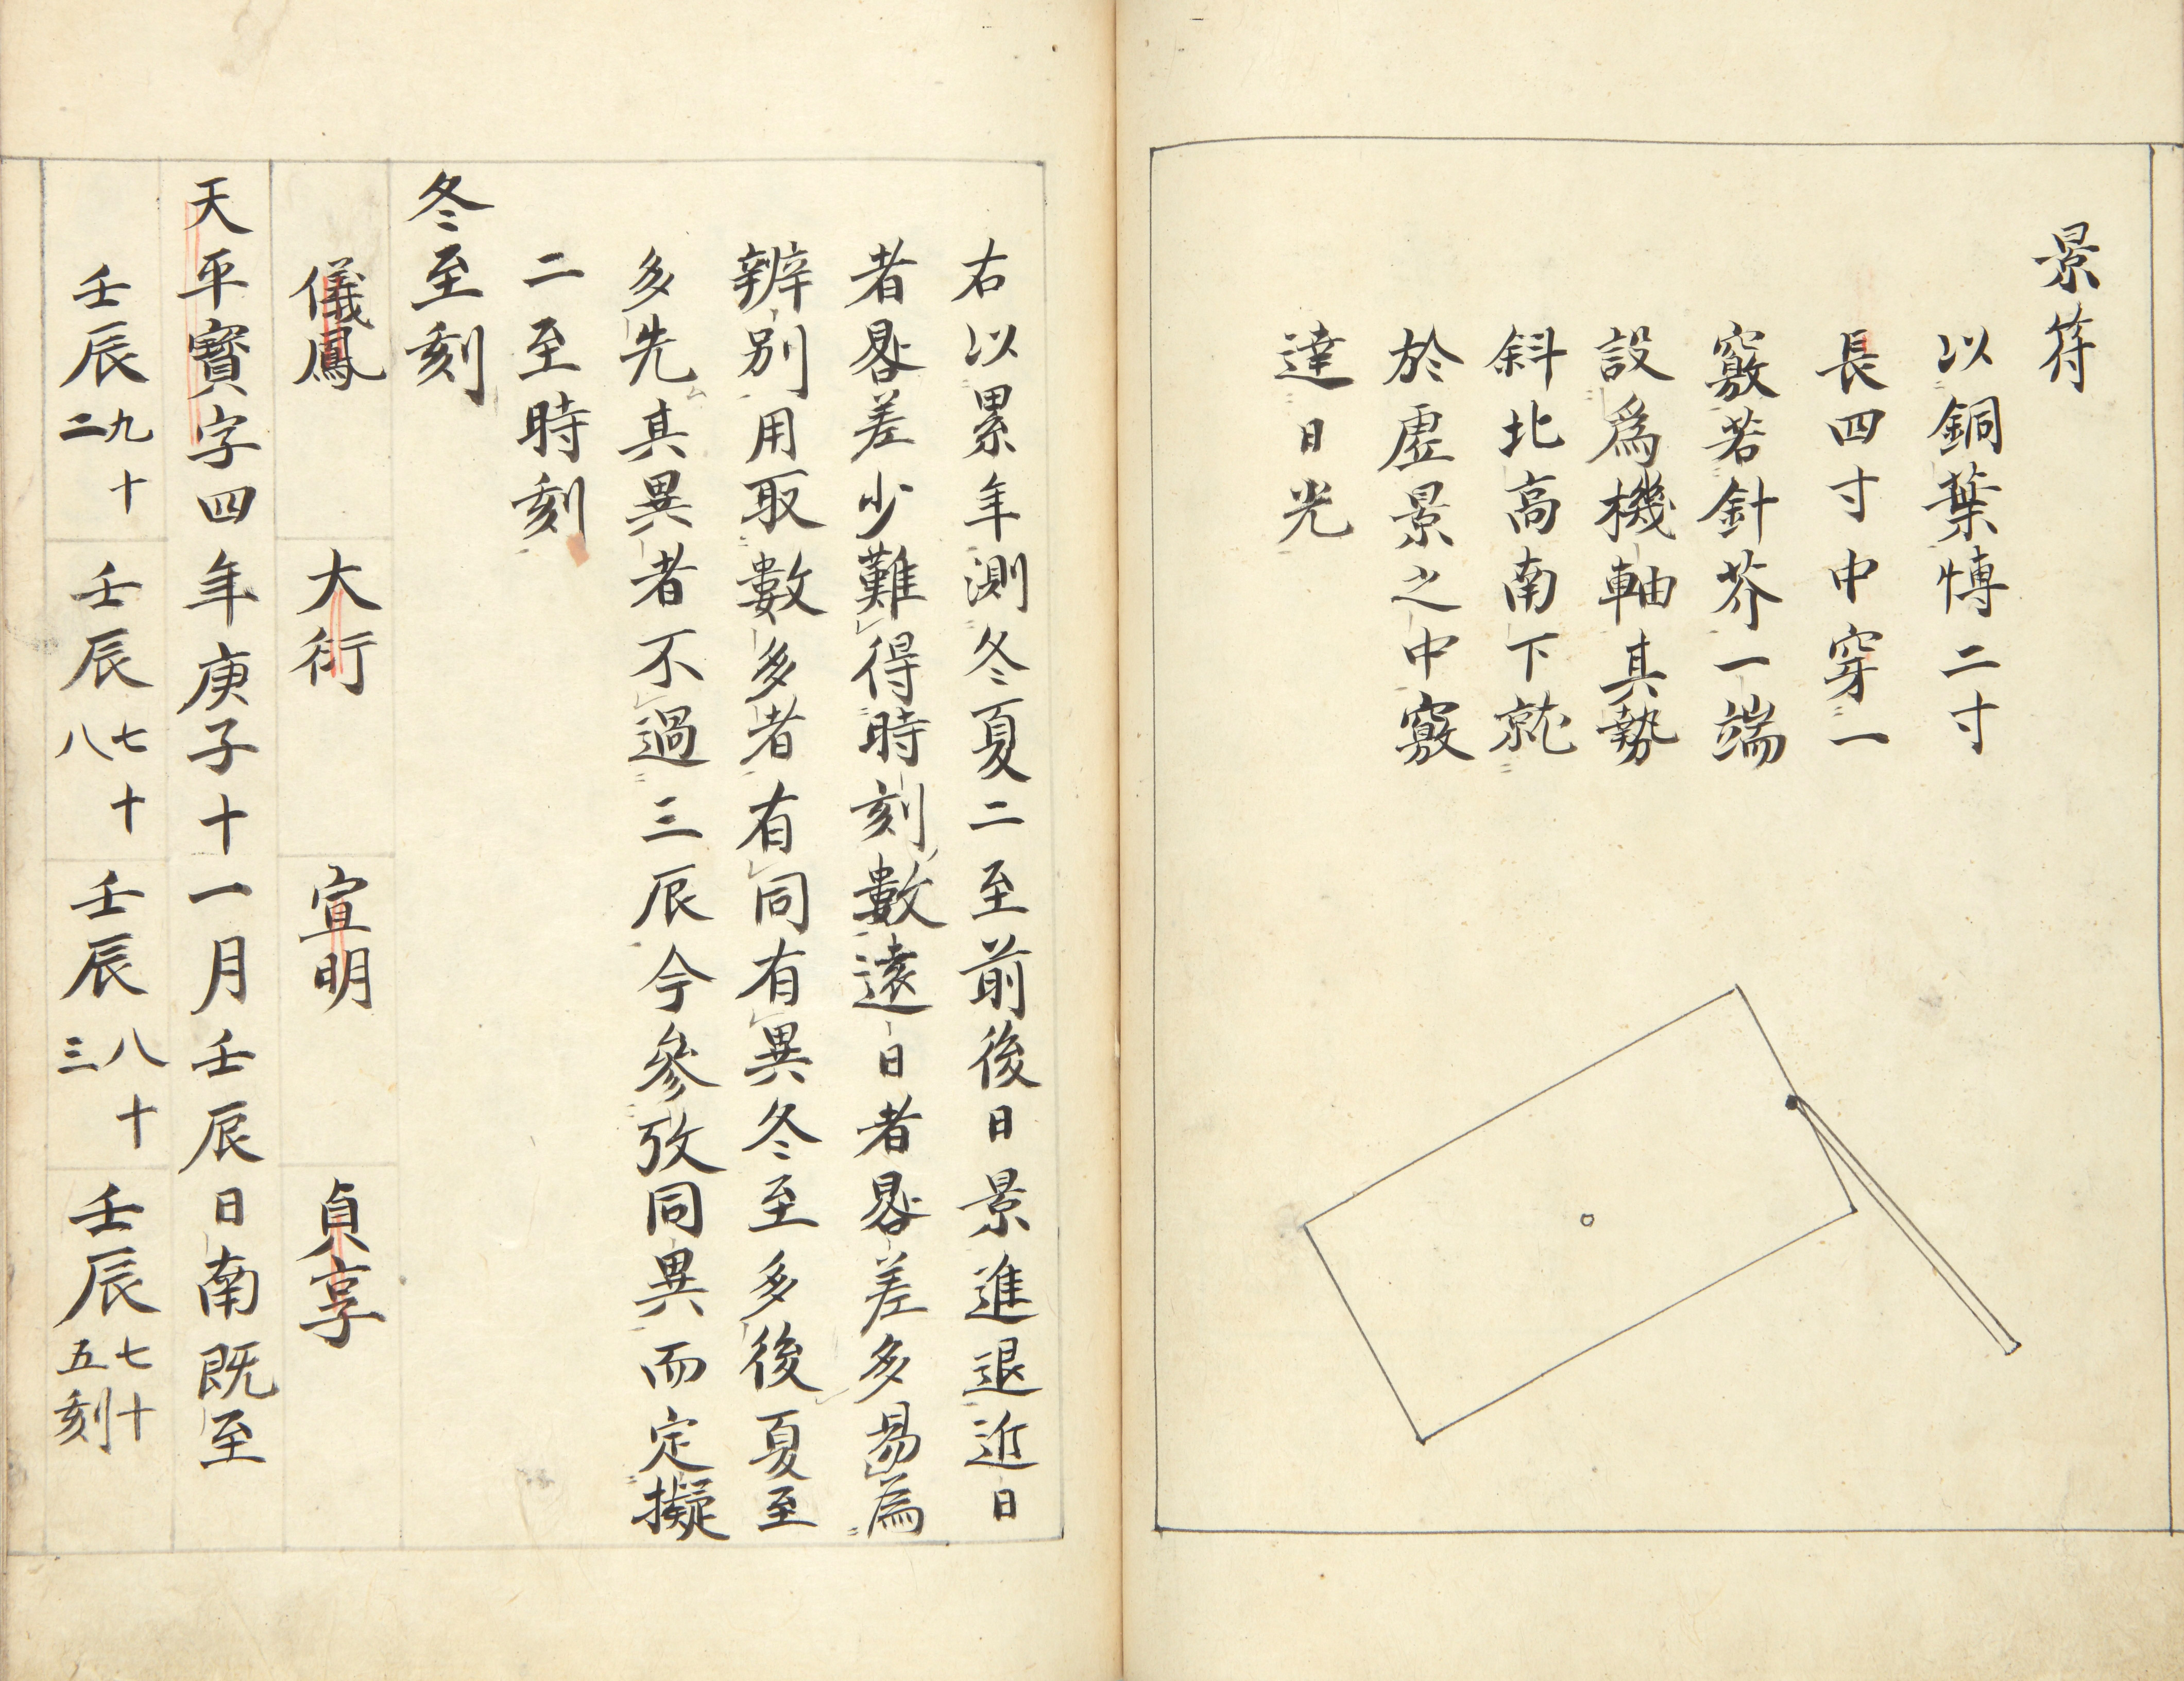 景符
以銅葉愽二寸
長四寸中穿一
竅若針芥一端
設爲機軸其勢
斜北高南下就
於虚景之中竅
達日光
右以累年測冬夏二至前後日景進退近日
者晷差少難得時刻數遠日者晷差多易為
辨別用取數多者有同有異冬至多後夏至
多先其異者不過三辰今參攷同異而定擬
二至時刻
冬至刻
儀鳳 大衍 宣明 貞享
天平寶字四年庚子十一月壬辰日南既至
壬辰九十二 壬辰七十八 壬辰八十三 壬辰七十五刻